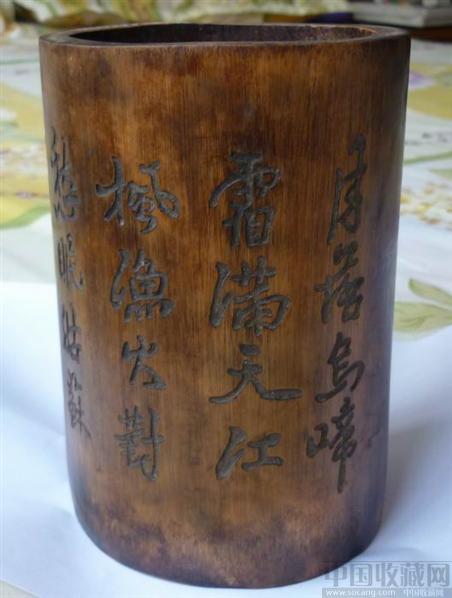 月落烏啼
霜滿天江
楓漁火對
愁眠姑蘇
中国收藏网
www.socang.com 中国收藏网